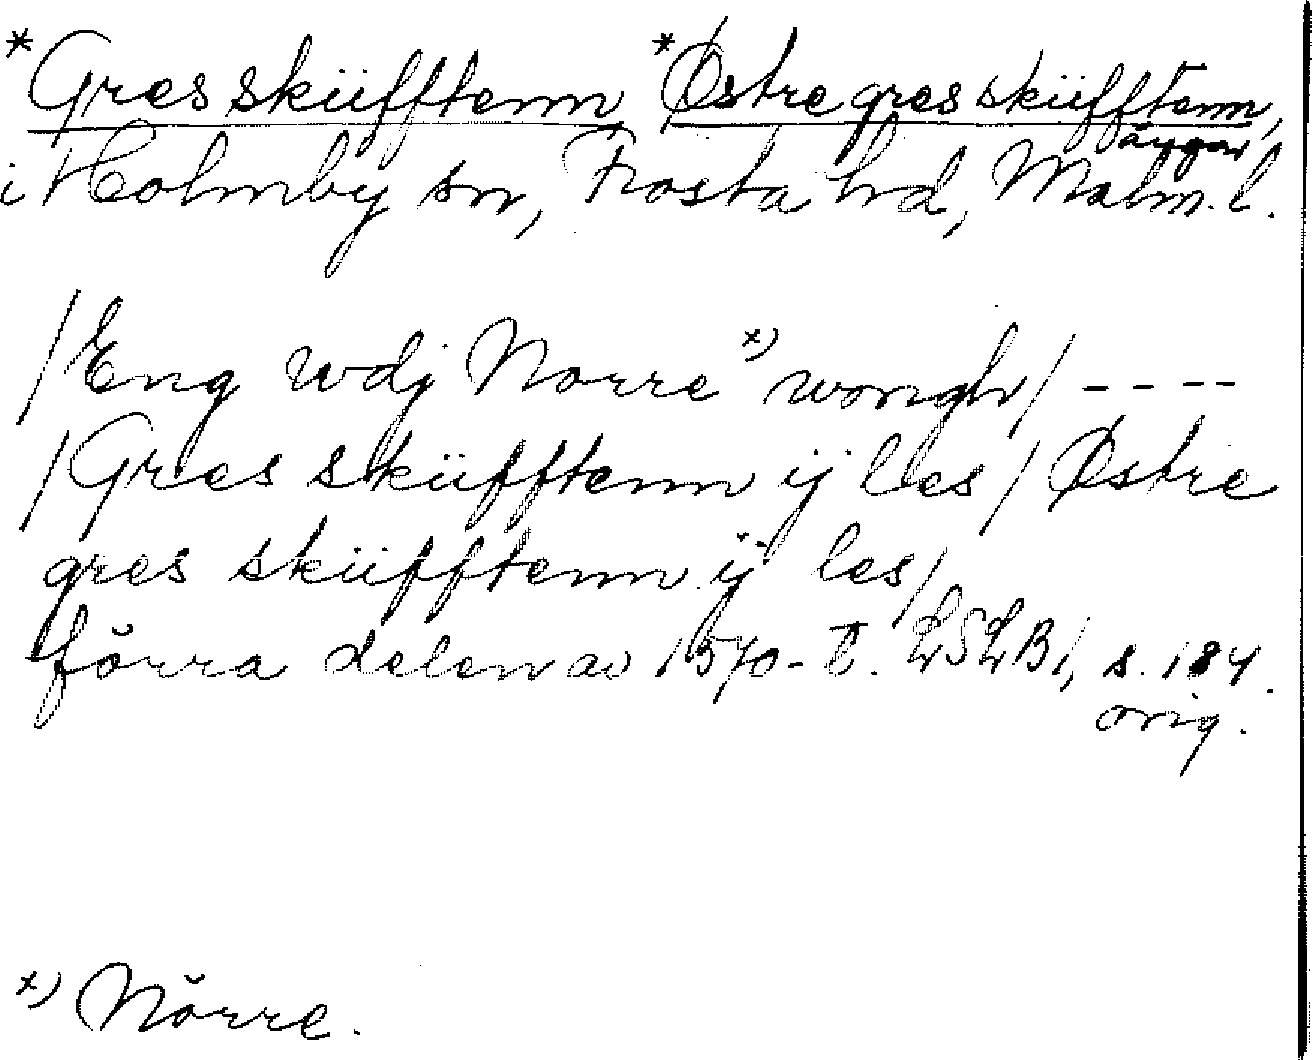 *Gres sküfftenn, *Østre gres sküfftenn,
ängar
i Holmby sn, Frosta hd, Malm. l.
/Eng wdj Norre x) wongh/ ----
/Gres sküfftenn ij les/ Østre
gres sküfftenn ij les/
förra delen av 1570-t. LSLB 1, s. 184.
orig.
x) Nörre.